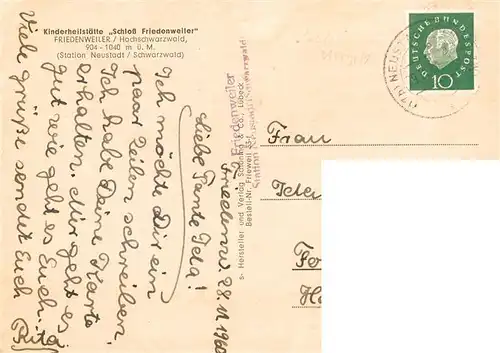 Kinderheilstätte „Schloß Friedenweiler“
FRIEDENWEILER / Hochschwarzwald,
904 - 1040 m ü. M.
(Station Neustadt / Schwarzwald)
Friedenw. 28.11.1960
Liebe Tante Tela!
Ich möchte Dir ein
paar Zeilen schreiben.
Ich habe Deine Karte
erhalten. Mir geht es
gut wie geht es Euch.
Viele grüße sendet Euch
Rita
Hersteller und Verlag Schöning & Co., Lübeck
Bestell-Nr. Friewei
Friedenweiler
Station Neustadt/Schwarzwald
DEUTSCHE BUNDESPOST
10
NEUS
Frau
Tela